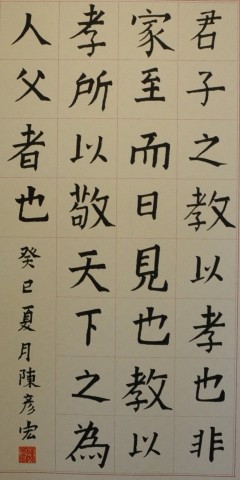 君子之教以孝也非
家至而日見也教以
孝所以敬天下之為
人父者也
癸巳夏月陳彥宏